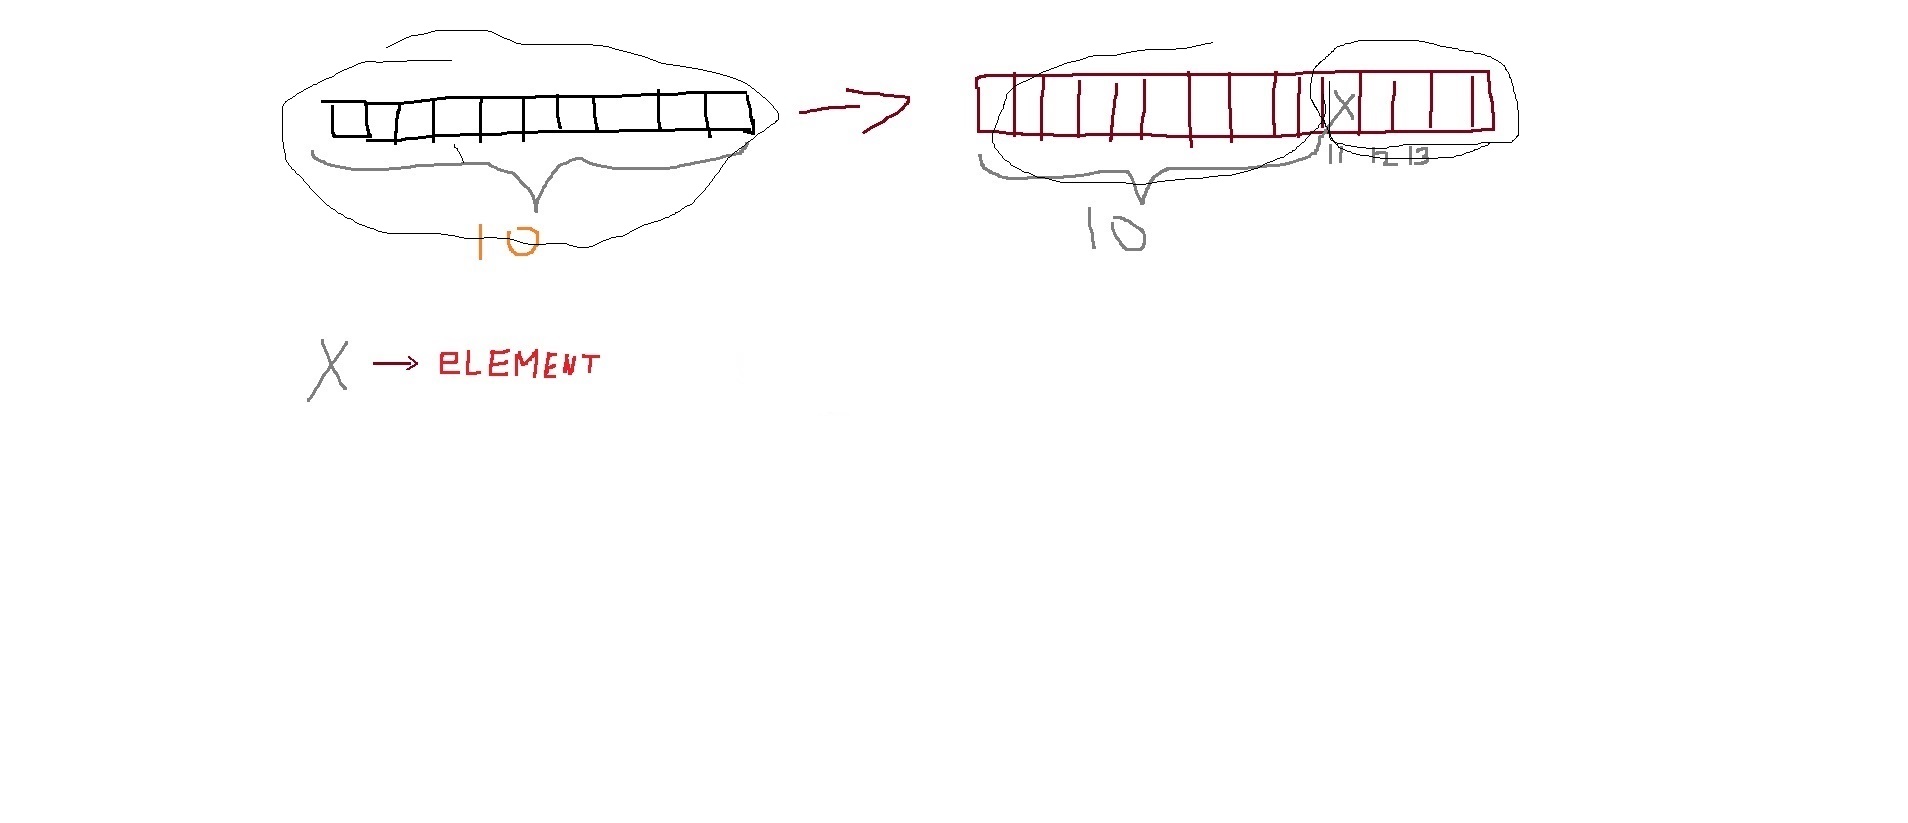 10
X
11 12 13
10
X → ELEMENT